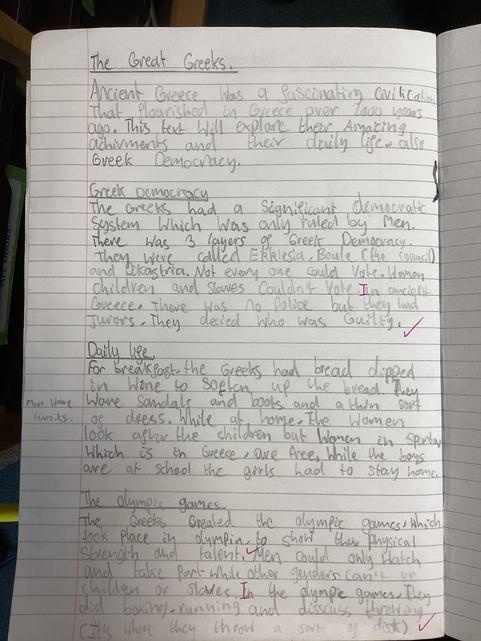 The Great Greeks.
Ancient Greece was a fascinating civilization
That flourished in Greece over 2000 years
ago. This text will explore their Amazing
achivments and their daily life. also
Greek Democracy.
Greek Democracy
The Greeks had a significant democratic
System which was only ruled by Men.
There was 3 layers of Greek Democracy.
They were called Ekklesia, Boule (the council)
and Dikastria. Not every one could Vote. Women
children and slaves Couldn't Vote In ancient
Greece. There was no police but they had
Jurors. They decied who was Guilty.
Daily life.
For breakfast the Greeks had bread dipped
in Wine to soften up the bread. They
Wore Sandals and boots and a thin sort
of dress. While at home. The Women
look after the children but Women in Sparta,
Which is in Greece, are free, While the boys
are at school the girls had to stay home.
Men Wore
The Olympic games.
The Greeks Created the olympic games, Which
took Place in olympia, to show their physical
Strength and talent. Men could only Watch
and take Part while other genders can't or
children or slaves. In the olympic games. They
did boxing, running and disscuss throwing
(It's where they throw a sort of disk)